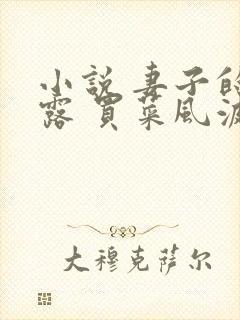 小说 妻子的
露 買菜風波
大穆克萨尔